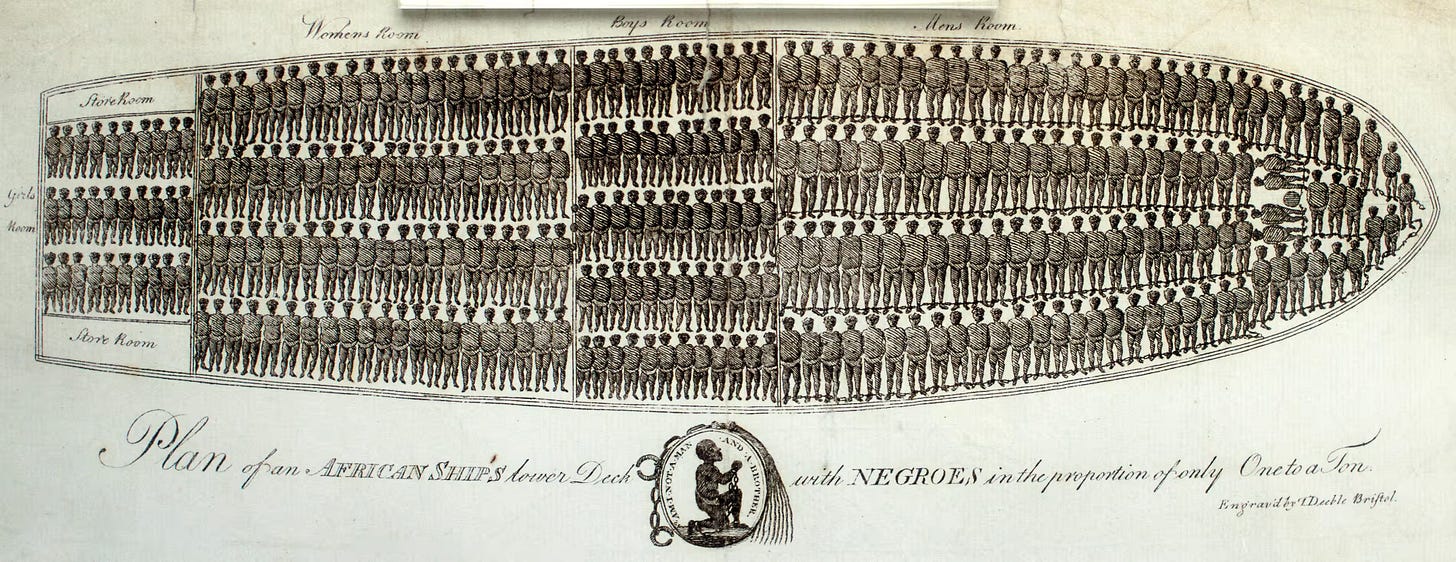 Womens Room
Boys Room
Mens Room.
Store Room
Girls
Room
Store Room
Plan of an AFRICAN SHIP'S lower Deck with NEGROES in the proportion of only One to a Ton.
"AM·I·NOT·A·MAN ·AND·A·BROTHER.
Engrav'd by T. Deeble Bristol.